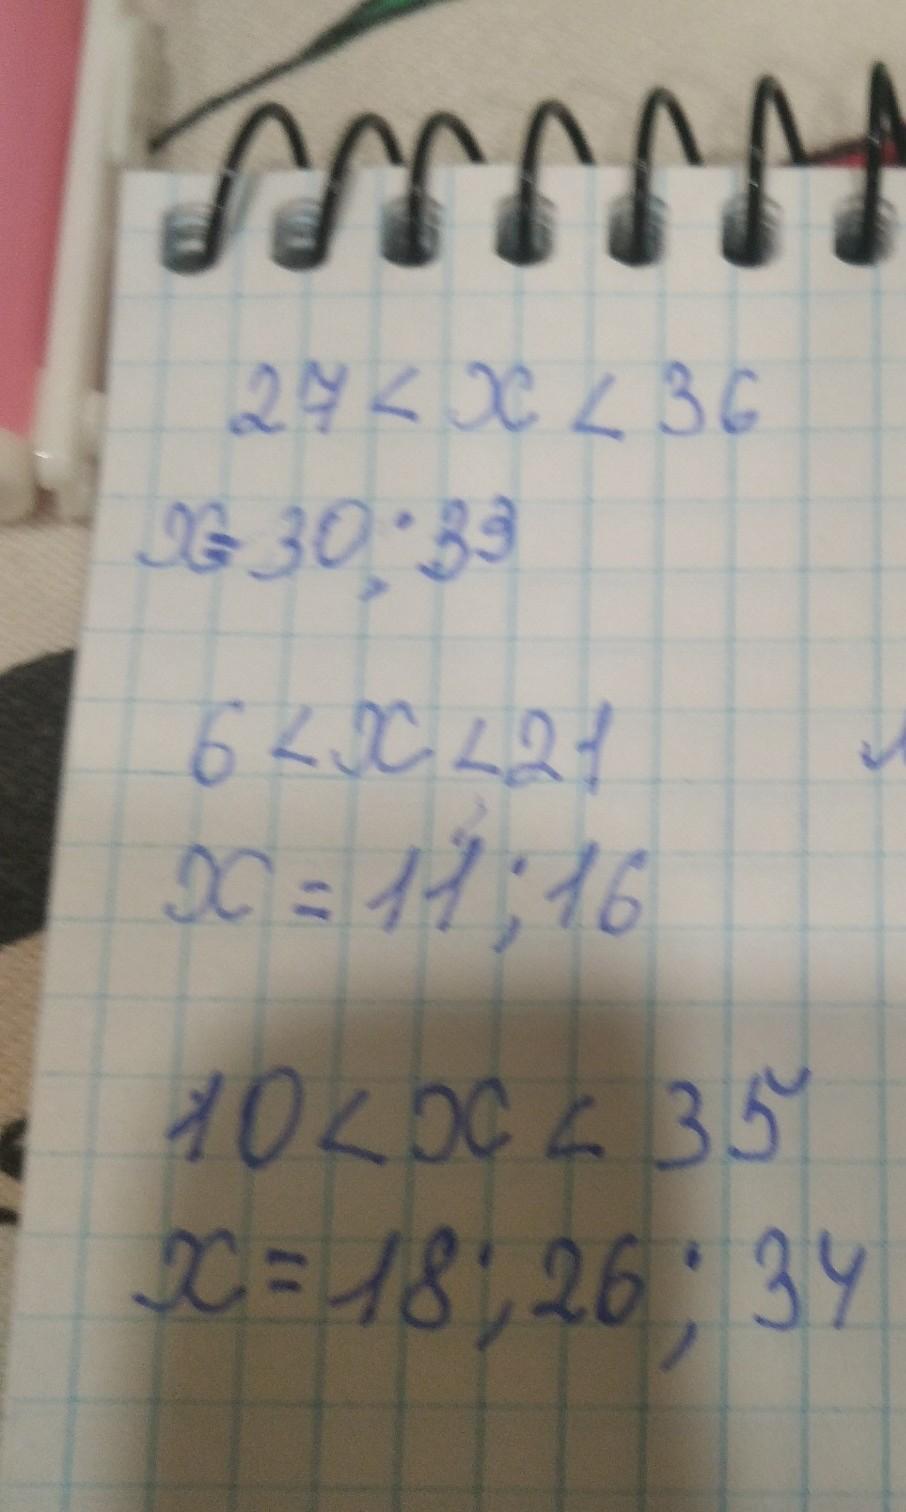 27 < x < 36
x = 30; 33
6 < x < 21
x = 11; 16
10 < x < 35
x = 18; 26; 34